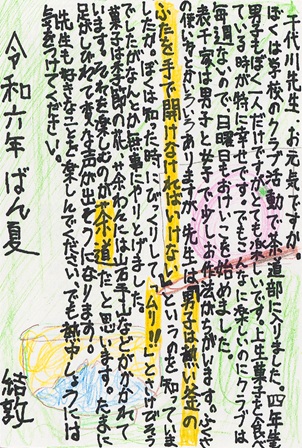 千代川先生、お元気ですか。
ぼくは学校のクラブ活動で茶道部に入りました。四年生
男子はぼく一人だけですが、とても楽しいです。上生菓子を食べ
ている時が特に幸せです。でもこんなに楽しいのにクラブは
毎週ないので、日曜日におけいこを始めました。
表千家は男子と女子で少しお作法がちがいます。ふくさ
の使い方とかいろいろありますが、先生は男子は熱い釜の
ふたを手で開けなければいけない」というのを知っていま
したか。ぼくは知った時にびっくりして「ムリ!!」とさけびそう
でしたがなんとか無事にやりとげました。
菓子は季節の花、茶わんには岩手山などがかかれて
います。それを楽しむのが茶道だと思います。たまに
足がしびれて変な声が出そうになります。
先生も好きなことを楽しんでください。でも熱中しょうには
気をつけてください。
令和六年 ばん夏
結敦